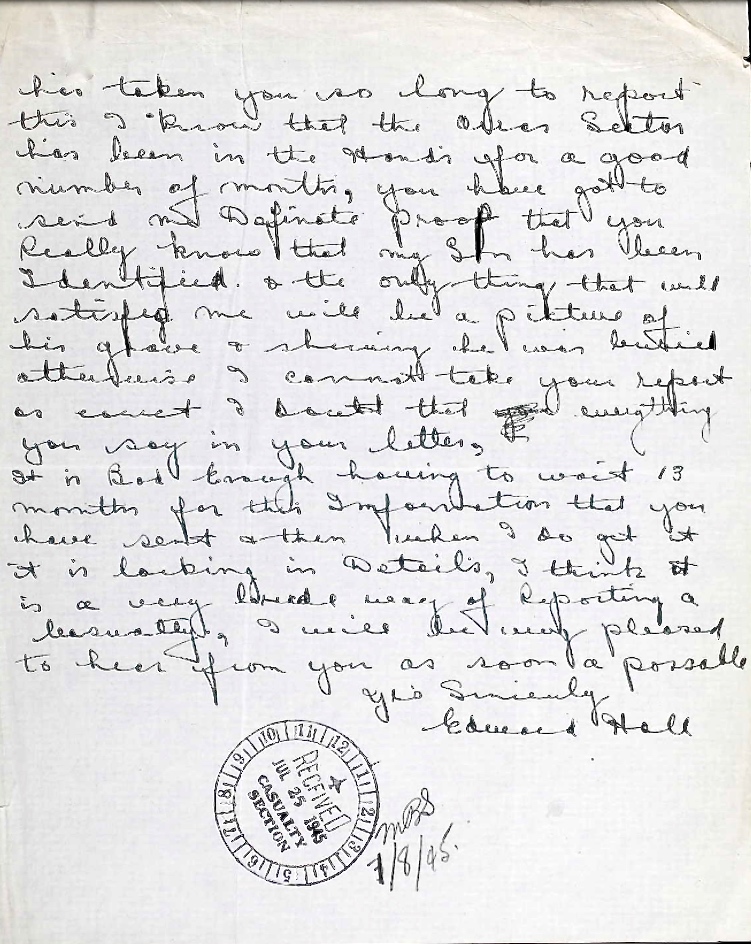 has taken you so long to report
this I know that the Area Sector
has been in the Hands for a good
number of months, you have got to
send me Definate proof that you
Really know that my Son has been
Identified. & the only thing that will
satisfy me will be a picture of
his grave & showing he was buried
otherwise I cannot take your report
as correct I Doubt that everything
you say in your letter,
It is Bad Enough having to wait 13
months for this Information that you
have sent & then when I do get it
it is lacking in Details, I think it
is a very way of Reporting a
Casualty, I will be very pleased
to hear from you as soon a possable
Yrs Sincerely
Edward Hall
RECEIVED
JUL 25 1945
CASUALTY
SECTION
12 1 2 3 4 5 6 7 8 9 10 11
MBS
1/8/45.